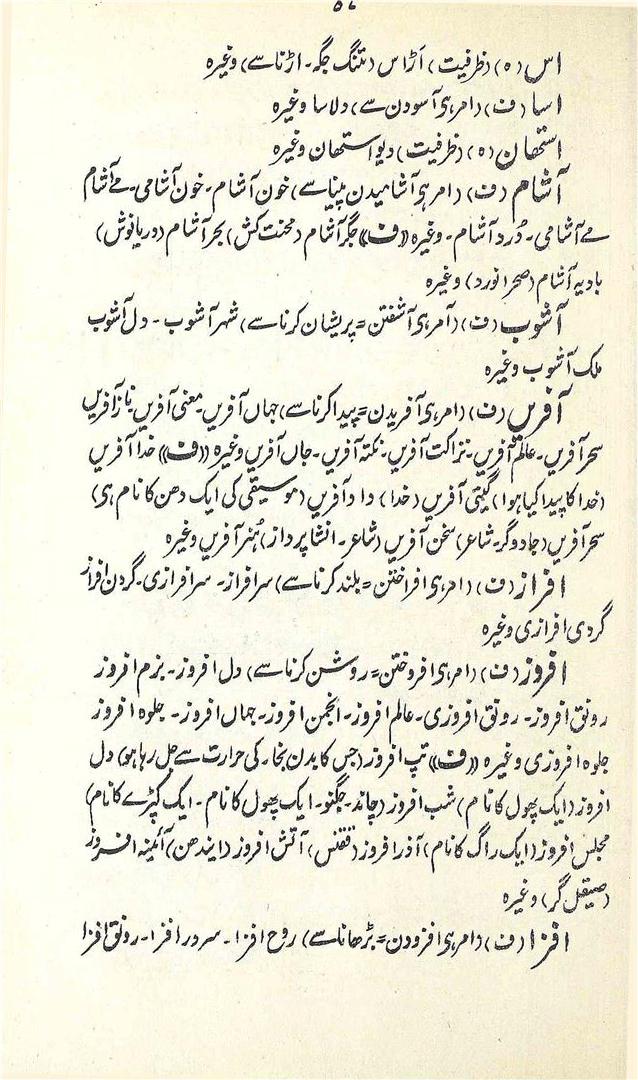 اس (ہ) (ظرفیت) اڑاس (تنگ جگہ۔ اڑنا سے) وغیرہ
اسا (ف) (امر ہی آسودن سے) دلاسا وغیرہ
استھان (ہ) (ظرفیت) دیو استھان وغیرہ
آشام (ف) (امر ہی آشامیدن پینا سے) خون آشام۔ خون آشامی۔ مے آشام
مے آشامی۔ دُرد آشام۔ وغیرہ ((ف)) جگر آشام (محنت کش) بحر آشام (دریا نوش)
بادیہ آشام (صحرا نورد) وغیرہ
آشوب (ف) (امر ہی آشفتن = پریشان کرنا سے) شہر آشوب۔ دل آشوب
ملک آشوب وغیرہ
آفریں (ف) (امر ہی آفریدن = پیدا کرنا سے) جہاں آفریں۔ معنی آفریں۔ ناز آفریں
سحر آفریں۔ عالم آفریں۔ نزاکت آفریں۔ نکتہ آفریں۔ جاں آفریں وغیرہ ((ف)) خدا آفریں
(خدا کا پیدا کیا ہوا) گیتی آفریں (خدا) داد آفریں (موسیقی کی ایک دھن کا نام ہی)
سحر آفریں (جادوگر۔ شاعر) سخن آفریں (شاعر۔ انشا پرداز) ہُنر آفریں وغیرہ
افراز (ف) (امر ہی افراختن = بلند کرنا سے) سرافراز۔ سرافرازی۔ گردن افراز
گردی افرازی وغیرہ
افروز (ف) (امر ہی افروختن = روشن کرنا سے) دل افروز۔ بزم افروز
رونق افروز۔ رونق افروزی۔ عالم افروز۔ انجمن افروز۔ جہاں افروز۔ جلوہ افروز
جلوہ افروزی وغیرہ ((ف)) تپ افروز (جس کا بدن بخار کی حرارت سے جل رہا ہو) دل
افروز (ایک پھول کا نام) شب افروز (چاند۔ جگنو۔ ایک پھول کا نام۔ ایک کپڑے کا نام)
مجلس افروز (ایک راگ کا نام) آذر افروز (ققنس) آتش افروز (ایندھن) آئینہ افروز
(صیقل گر) وغیرہ
افزا (ف) (امر ہی افزودن = بڑھانا سے) روح افزا۔ سرور افزا۔ رونق افزا